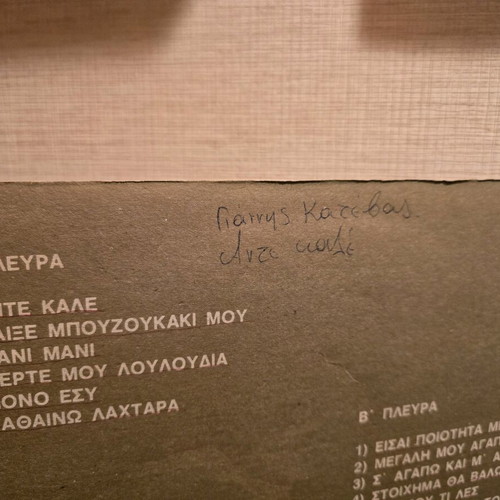 Γιάννης Κατεβας
Άντε καλέ
ΠΛΕΥΡΑ
ΝΤΕ ΚΑΛΕ
ΑΙΞΕ ΜΠΟΥΖΟΥΚΑΚΙ ΜΟΥ
ΑΝΙ ΜΑΝΙ
ΕΡΤΕ ΜΟΥ ΛΟΥΛΟΥΔΙΑ
ΟΝΟ ΕΣΥ
ΑΘΑΙΝΩ ΛΑΧΤΑΡΑ
Β΄ ΠΛΕΥΡΑ
1) ΕΙΣΑΙ ΠΟΙΟΤΗΤΑ Μ
2) ΜΕΓΑΛΗ ΜΟΥ ΑΓΑΠ
3) Σ΄ ΑΓΑΠΩ ΚΑΙ Μ΄ Α
4) ΣΤΟΙΧΗΜΑ ΘΑ ΒΑΛΩ
ΤΙ ΛΕΣ